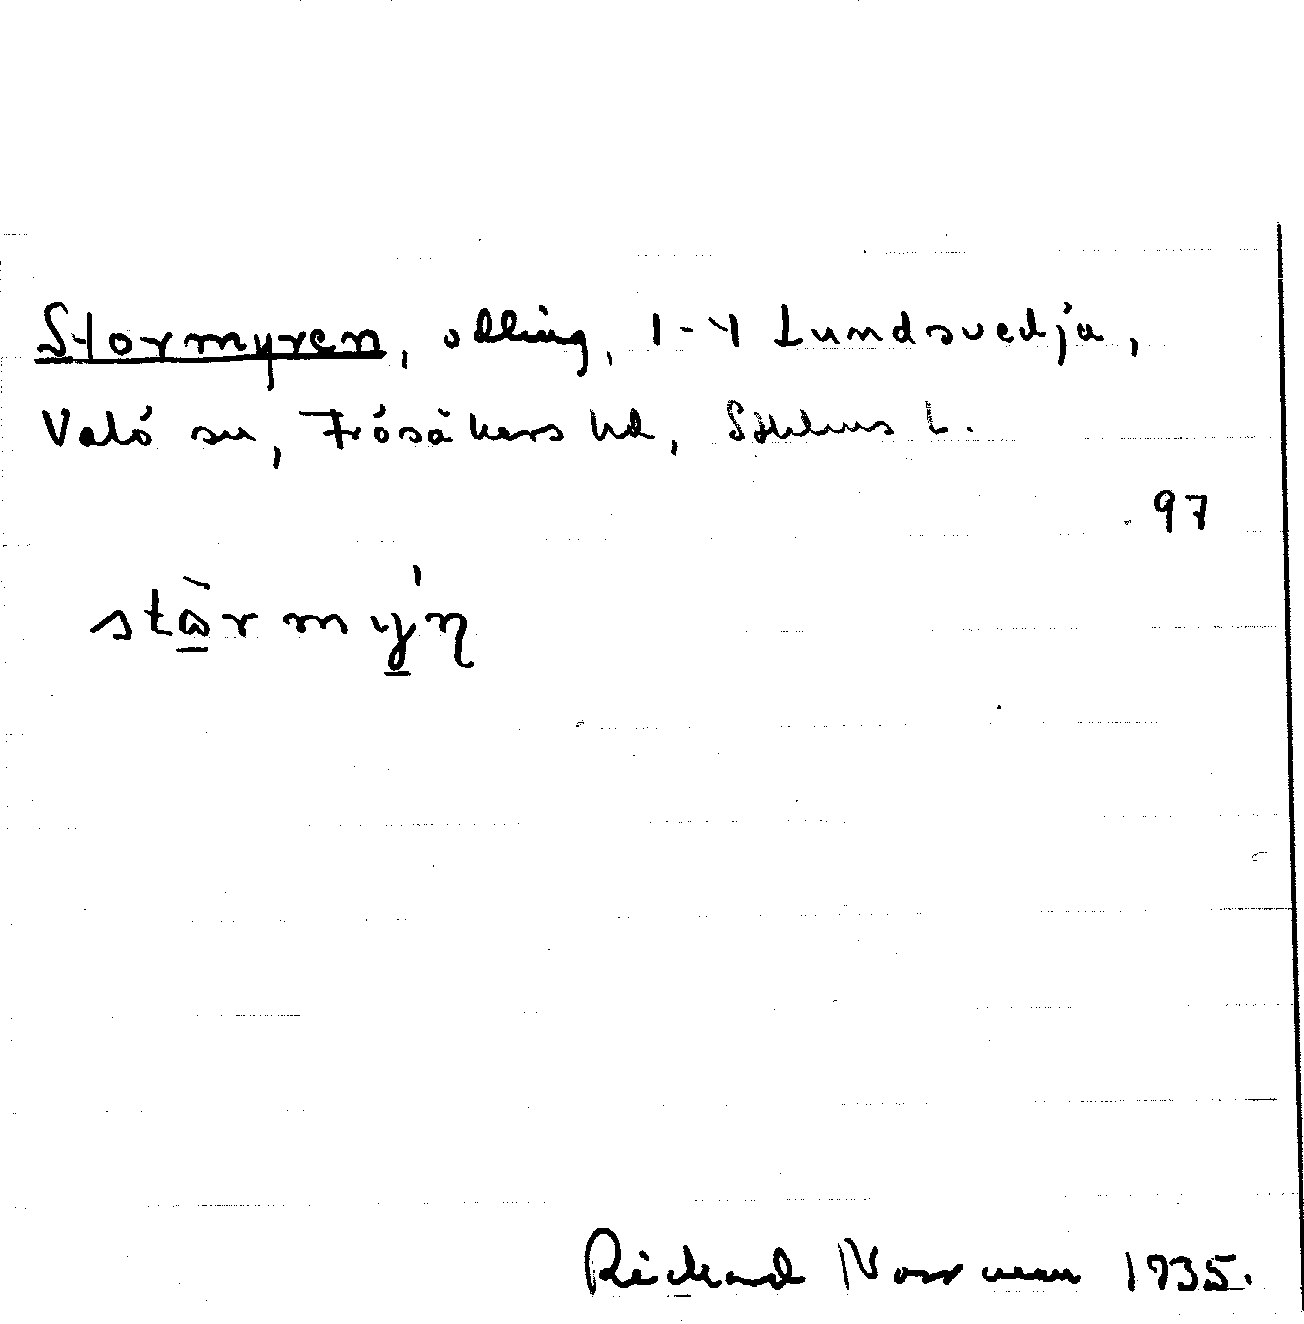 Stormyren, odling, 1-4 Lundsvedja,
Valö sn, Frösåkers hd, Sthlms L.
97
Rickard Norrman 1935.